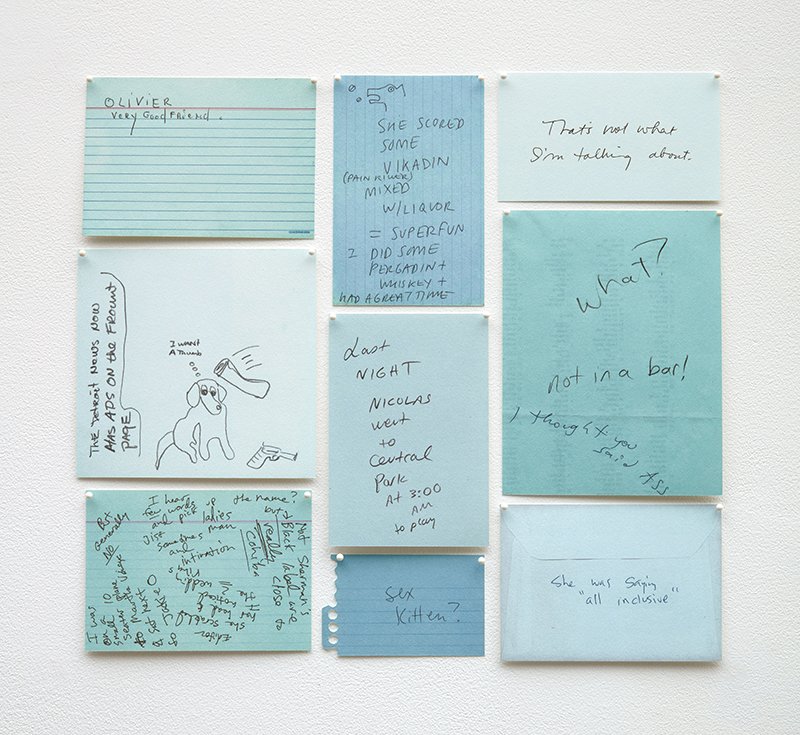 OLIVIER
VERY GOOD FRIEND.
SHE SCORED
SOME
VIKADIN
(PAIN KILLER)
MIXED
W/LIQUOR
= SUPERFUN
I DID SOME
PERCADIN +
WHISKEY +
HAD A GREAT TIME
That's not what
I'm talking about.
THE DETROIT NEWS NOW
HAS ADS ON the FROUNT
PAGE
I WANT
A Thumb
Last
NIGHT
NICOLAS
went
to
Central
Park
At 3:00
AM
to play
what?
not in a bar!
I thought you
said ASS
I hear
few words
and pick up
ladies
man
and
the name?
Not Sherman's
but
Black label are
really close to
Cohiba
generally
NO
I was
on a
small
so
sex
kitten?
She was saying
"all inclusive"